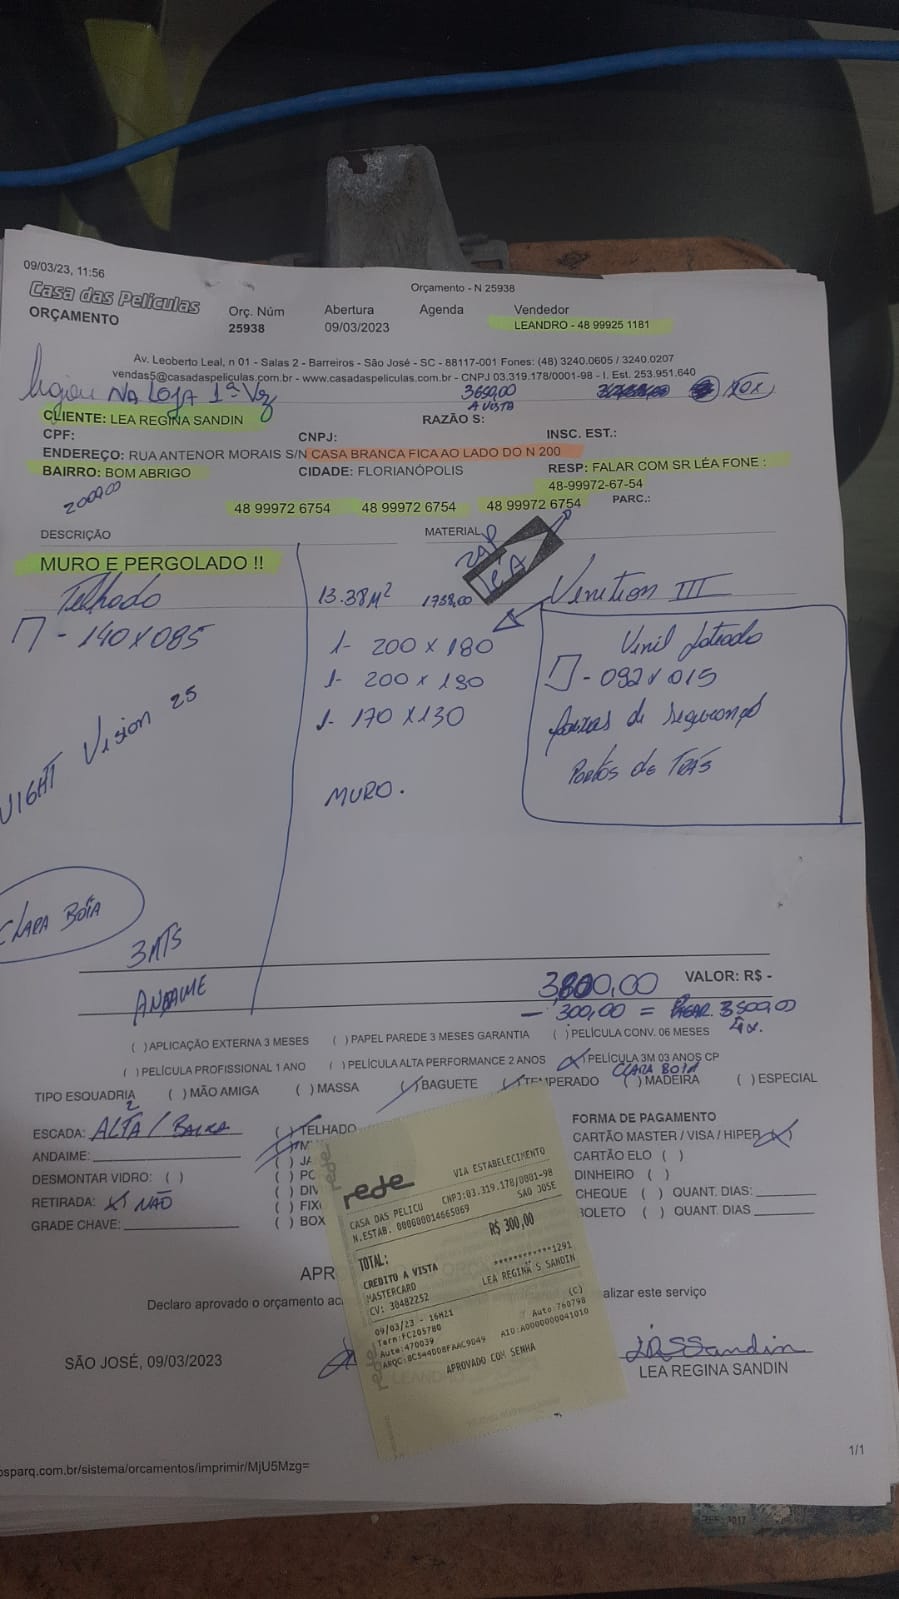 09/03/23, 11:56
Orçamento - N 25938
Casa das Películas
ORÇAMENTO
Orç. Núm Abertura Agenda Vendedor
25938 09/03/2023 LEANDRO - 48 99925 1181
Av. Leoberto Leal, n 01 - Salas 2 - Barreiros - São José - SC - 88117-001 Fones: (48) 3240.0605 / 3240.0207
vendas5@casadaspeliculas.com.br - www.casadaspeliculas.com.br - CNPJ 03.319.178/0001-98 - I. Est. 253.951.640
NA LOJA 1ª Vez
3650,00
A VISTA
10x
CLIENTE: LEA REGINA SANDIN RAZÃO S:
CPF: CNPJ: INSC. EST.:
ENDEREÇO: RUA ANTENOR MORAIS S/N CASA BRANCA FICA AO LADO DO N 200
BAIRRO: BOM ABRIGO CIDADE: FLORIANÓPOLIS RESP: FALAR COM SR LÉA FONE :
48-99972-67-54
2000,00
48 99972 6754 48 99972 6754 48 99972 6754 PARC.:
DESCRIÇÃO MATERIAL
ZAP
LÉA
MURO E PERGOLADO !!
Telhado 13.38M² 1738,00 Venetion III
17 - 140 x 085
1- 200 x 180
1- 200 x 130
1- 170 x 130
MURO.
Vinil Jateado
- 092 x 015
faixas de segurança
Portas de Trás
NIGHT Vision 25
CLARA BOIA
3 MTS
ANDAIME
3800,00 VALOR: R$ -
- 300,00 = PAGAR. 3500,00
4x.
( ) APLICAÇÃO EXTERNA 3 MESES ( ) PAPEL PAREDE 3 MESES GARANTIA ( ) PELÍCULA CONV. 06 MESES
( ) PELÍCULA PROFISSIONAL 1 ANO ( ) PELÍCULA ALTA PERFORMANCE 2 ANOS (x) PELÍCULA 3M 03 ANOS CP
CLARA BOIA
TIPO ESQUADRIA ( ) MÃO AMIGA ( ) MASSA ( ) BAGUETE ( ) TEMPERADO ( ) MADEIRA ( ) ESPECIAL
2
ESCADA: ALTA / BAIXA
ANDAIME:
DESMONTAR VIDRO: ( )
RETIRADA: (x) NÃO
GRADE CHAVE:
( ) TELHADO
( ) JA
( ) PO
( ) DIV
( ) FIX
( ) BOX
FORMA DE PAGAMENTO
CARTÃO MASTER / VISA / HIPER (x)
CARTÃO ELO ( )
DINHEIRO ( )
CHEQUE ( ) QUANT. DIAS:
BOLETO ( ) QUANT. DIAS
rede
VIA ESTABELECIMENTO
CASA DAS PELICU CNPJ:03.319.178/0001-98
N.ESTAB. 000000014665069 SAO JOSE
TOTAL: R$ 300,00
CREDITO A VISTA
MASTERCARD ************1291
CV: 30482252 LEA REGINA S SANDIN
09/03/23 - 16H21 (C)
Term:FC205780 Auto:760798
Aute:470039
ARQC:8C544D08FAAC9D49 AID:A0000000041010
APROVADO COM SENHA
APR
Declaro aprovado o orçamento ac
alizar este serviço
SÃO JOSÉ, 09/03/2023
LRSSandin
LEA REGINA SANDIN
1/1
osparq.com.br/sistema/orcamentos/imprimir/MjU5Mzg=